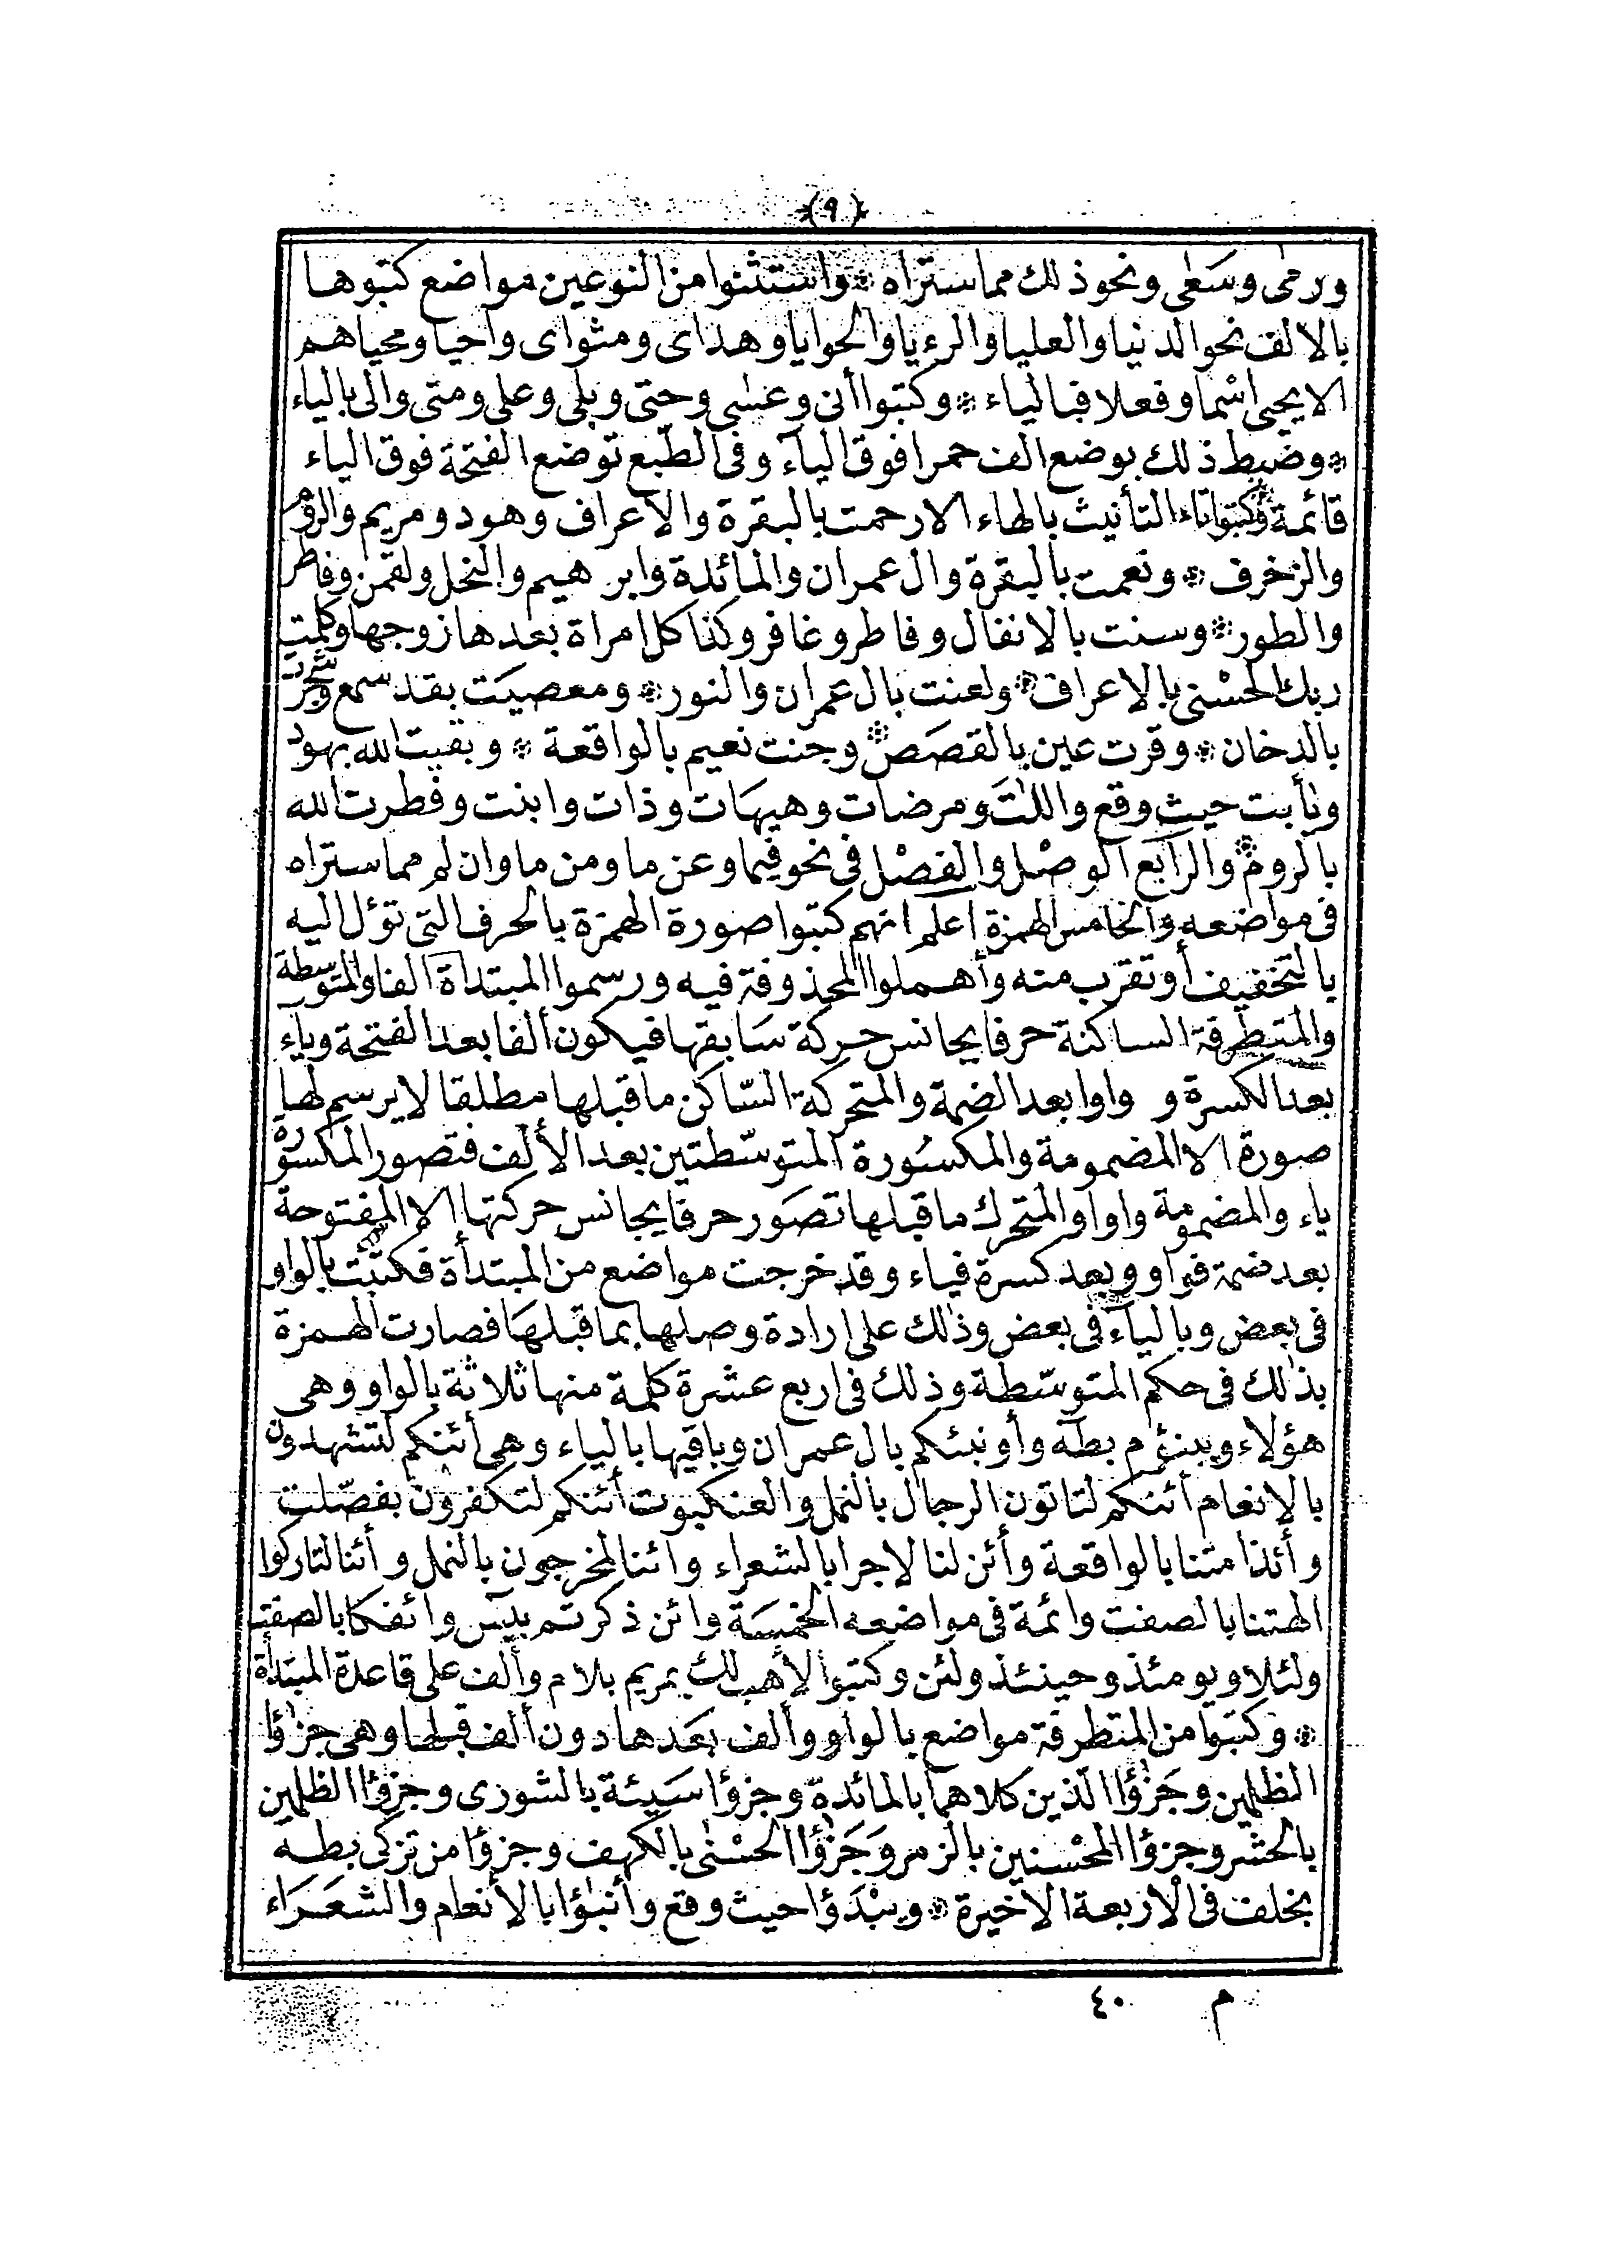 (٩)
ورمى وسَعٰى ونحو ذلك مما ستراه ۞ واستثنوا من النوعين مواضع كتبوها
بالالف نحو الدنيا والعليا والرءيا والحوايا وهداى ومثواى واحيا ومحياهم
الا يحيى اسْما وفعلا فبالياء ۞ وكتبوا أنى وعسٰى وحتى وبلى وعلى ومتى والى بالياء
۞ وضبط ذلك بوضع الف حمرا فوق الياء وفى الطبع توضع الفتحة فوق الياء
قائمة وكتبوا تاء التأنيث بالهاء الا رحمت بالبقرة والاعراف وهود ومريم والروم
والزخرف ۞ ونعمت بالبقرة وال عمران والمائدة وابرهيم والنحل ولقمن وفاطر
والطور ۞ وسنت بالانفال وفاطر وغافر وكذا كل امراة بعدها زوجها وكلمت
ربك الحسْنى بالاعراف ۞ ولعنت بال عمران والنور ۞ ومعصيَت بقد سمع وشجرت
بالدخان ۞ وقرت عين بالقصَص ۞ وجنت نعيم بالواقعة ۞ وبقيت الله بهود
ويٰأبت حيث وقع واللٰت ومرضات وهيهَات وذات وابنت وفطرت الله
بالروم ۞ والرابع الوصْل والفصْل فى نحو فيما وعن ما ومن ما وان لم مما ستراه
فى مواضعه والخامس الهمزة اعلم انهم كتبوا صورة الهمزة بالحرف التى تؤل اليه
بالتخفيف أو تقرب منه وأهملوا المحذوفة فيه ورسموا المبتداة الفا والمتوسطة
والمتطرفة الساكنة حرفا يجانس حركة سَابقها فيكون ألفا بعد الفتحة وياء
بعد الكسرة و واوا بعد الضمة والمتحركة السّاكن ما قبلها مطلقا لا يرسم لها
صورة الا المضمومة والمكسُورة المتوسّطتين بعد الألف فتصور المكسورة
ياء والمضمومة واوا والمتحرك ما قبلها تصَور حرفا يجانس حركتها الا المفتوحة
بعد ضمة فواو وبعد كسرة فياء وقد خرجت مواضع من المبتدأة فكتبت بالواو
فى بعض وبالياء فى بعض وذٰلك على ارادة وصلها بما قبلهَا فصارت الهمزة
بذٰلك فى حكم المتوسّطة وذلك فى اربع عشرة كلمة منها ثلاثة بالواو وهى
هؤلاء ويبنؤم بطه وأونبئكم بال عمران وباقيها بالياء وهى أئنكم لتشهدون
بالانعام أئنكم لتاتون الرجال بالنمل والعنكبوت أئنكم لتكفرون بفصّلت
وأئذا متنا بالواقعة وأئن لنا لاجرا بالشعراء وائنا لمخرجون بالنمل وأئنا لتاركوا
الهتنا بالصفت وائمة فى مواضعه الخمسَة وائن ذكرتم بيسٓ وائفكا بالصفت
ولئلا ويومئذ وحينئذ ولئن وكتبوا لأهب لك بمريم بلام وألف على قاعدة المبتدأة
۞ وكتبوا من المتطرفة مواضع بالواو وألف بعَدها دون ألف قبلها وهى جزٰؤا
الظلمين وجَزٰؤا الذين كلاهما بالمائدة وجزؤا سَيئة بالشورى وجزؤا الظلمين
بالحشر وجزؤا المحْسنين بالزمر وَجَزٰؤا الحسْنٰى بالكهف وجزؤا من تزكى بطه
بخلف فى الاربعة الاخيرة ۞ ويبْدَؤا حيث وقع وأنبٰؤا بالأنعام والشعَرَاء
م ٤٠